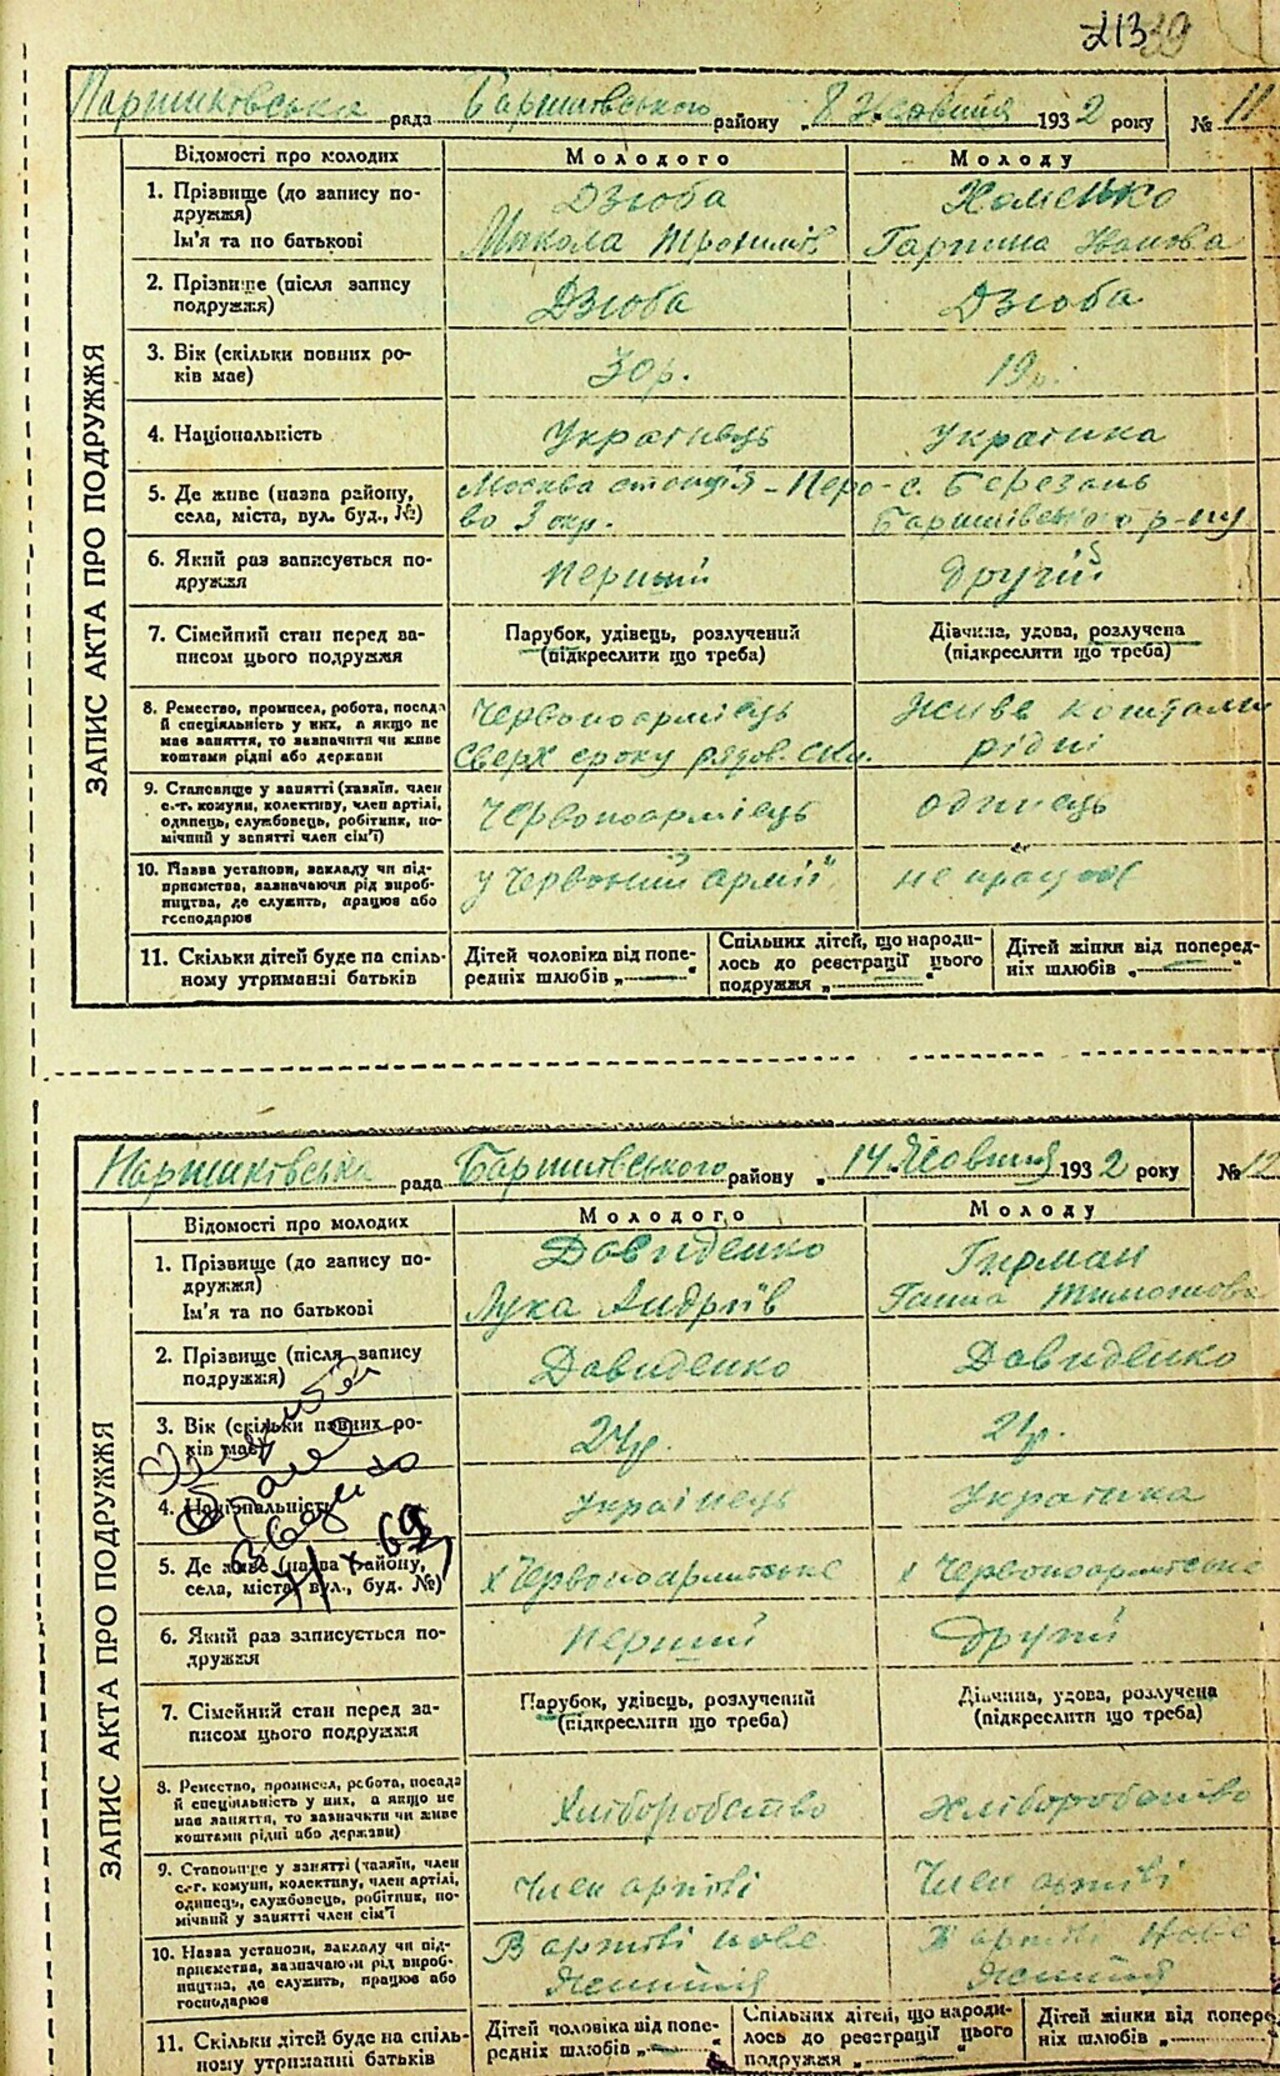 213 39
Паришківська рада Баришівського району „8 Жовтня 1932 року № 11
ЗАПИС АКТА ПРО ПОДРУЖЖЯ
Відомості про молодих Молодого Молоду
1. Прізвище (до запису по- Дзюба Хоменко
дружжя)
Ім'я та по батькові Микола Трохимів Гарпина Іванова
2. Прізвище (після запису Дзюба Дзюба
подружжя)
3. Вік (скільки повних ро- 30 р. 19 р.
ків має)
4. Національність Українець Українка
5. Де живе (назва району, Москва станція - Перо- с. Березань
села, міста, вул. буд., №) во 3 окр. Баришівського р-ну
6. Який раз записується по- перший другий
дружжя
7. Сімейний стан перед за- Парубок, удівець, розлучений Дівчина, удова, розлучена
писом цього подружжя (підкреслити що треба) (підкреслити що треба)
8. Ремество, промисел, робота, посада Червоноармієць Живе коштами
й спеціяльність у них, а якщо не
має заняття, то зазначити чи живе Сверх сроку рядов. рідні
коштами рідні або держави
9. Становище у занятті (хазяїн, член Червоноармієць одинець
с.-г. комуни, колективу, член артілі,
одинець, службовець, робітник, по-
мічний у занятті член сім'ї)
10. Назва установи, закладу чи під- у Червоний армії" не працює
приємства, зазначаючи рід вироб-
ництва, де служить, працює або
господарює
11. Скільки дітей буде на спіль- Дітей чоловіка від попе- Спільних дітей, що народи- Дітей жінки від поперед-
ному утриманні батьків редніх шлюбів „—“ лось до реєстрації цього ніх шлюбів „—“
подружжя „—“
Паришківська рада Баришівського району „14 Жовтня 1932 року № 12
ЗАПИС АКТА ПРО ПОДРУЖЖЯ
Відомості про молодих Молодого Молоду
1. Прізвище (до запису по- Давиденко Гирман
дружжя)
Ім'я та по батькові Лука Андріїв Ганна Тимошова
2. Прізвище (після запису Давиденко Давиденко
подружжя)
3. Вік (скільки повних ро- 24 р. 21 р.
ків має)
4. Національність Українець Українка
5. Де живе (назва району, х Червоноармійське х Червоноармійське
села, міста, вул., буд. №)
6. Який раз записується по- перший другий
дружжя
7. Сімейний стан перед за- Парубок, удівець, розлучений Дівчина, удова, розлучена
писом цього подружжя (підкреслити що треба) (підкреслити що треба)
8. Ремество, промисел, робота, посада Хліборобство Хліборобство
й спеціяльність у них, а якщо не
має заняття, то зазначити чи живе
коштами рідні або держави)
9. Становище у занятті (хазяїн, член Член артілі Член артілі
с.-г. комуни, колективу, член артілі,
одинець, службовець, робітник, по-
мічний у занятті член сім'ї
10. Назва установи, закладу чи під- В артілі нове В артілі Нове
приємства, зазначаючи рід вироб- Життя Життя
ництва, де служить, працює або
господарює
11. Скільки дітей буде на спіль- Дітей чоловіка від попе- Спільних дітей, що народи- Дітей жінки від поперед
ному утриманні батьків редніх шлюбів „—“ лось до реєстрації цього ніх шлюбів „
подружжя „—“